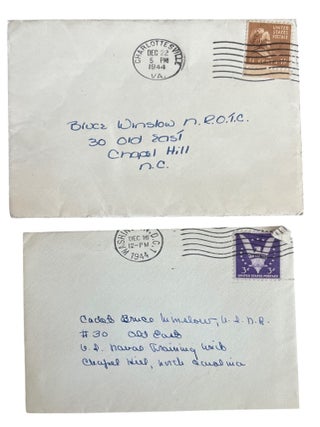 CHARLOTTESVILLE
DEC 22
5 PM
1944
VA.
UNITED STATES
POSTAGE
Bruce Winslow N.R.O.T.C.
30 Old East
Chapel Hill
N.C.
DEC 16
12-PM
1944
3¢ 3¢
UNITED STATES POSTAGE
Cadet Bruce Winslow, U.S.N.R.
#30 Old East
U.S. Naval Training Unit
Chapel Hill, North Carolina